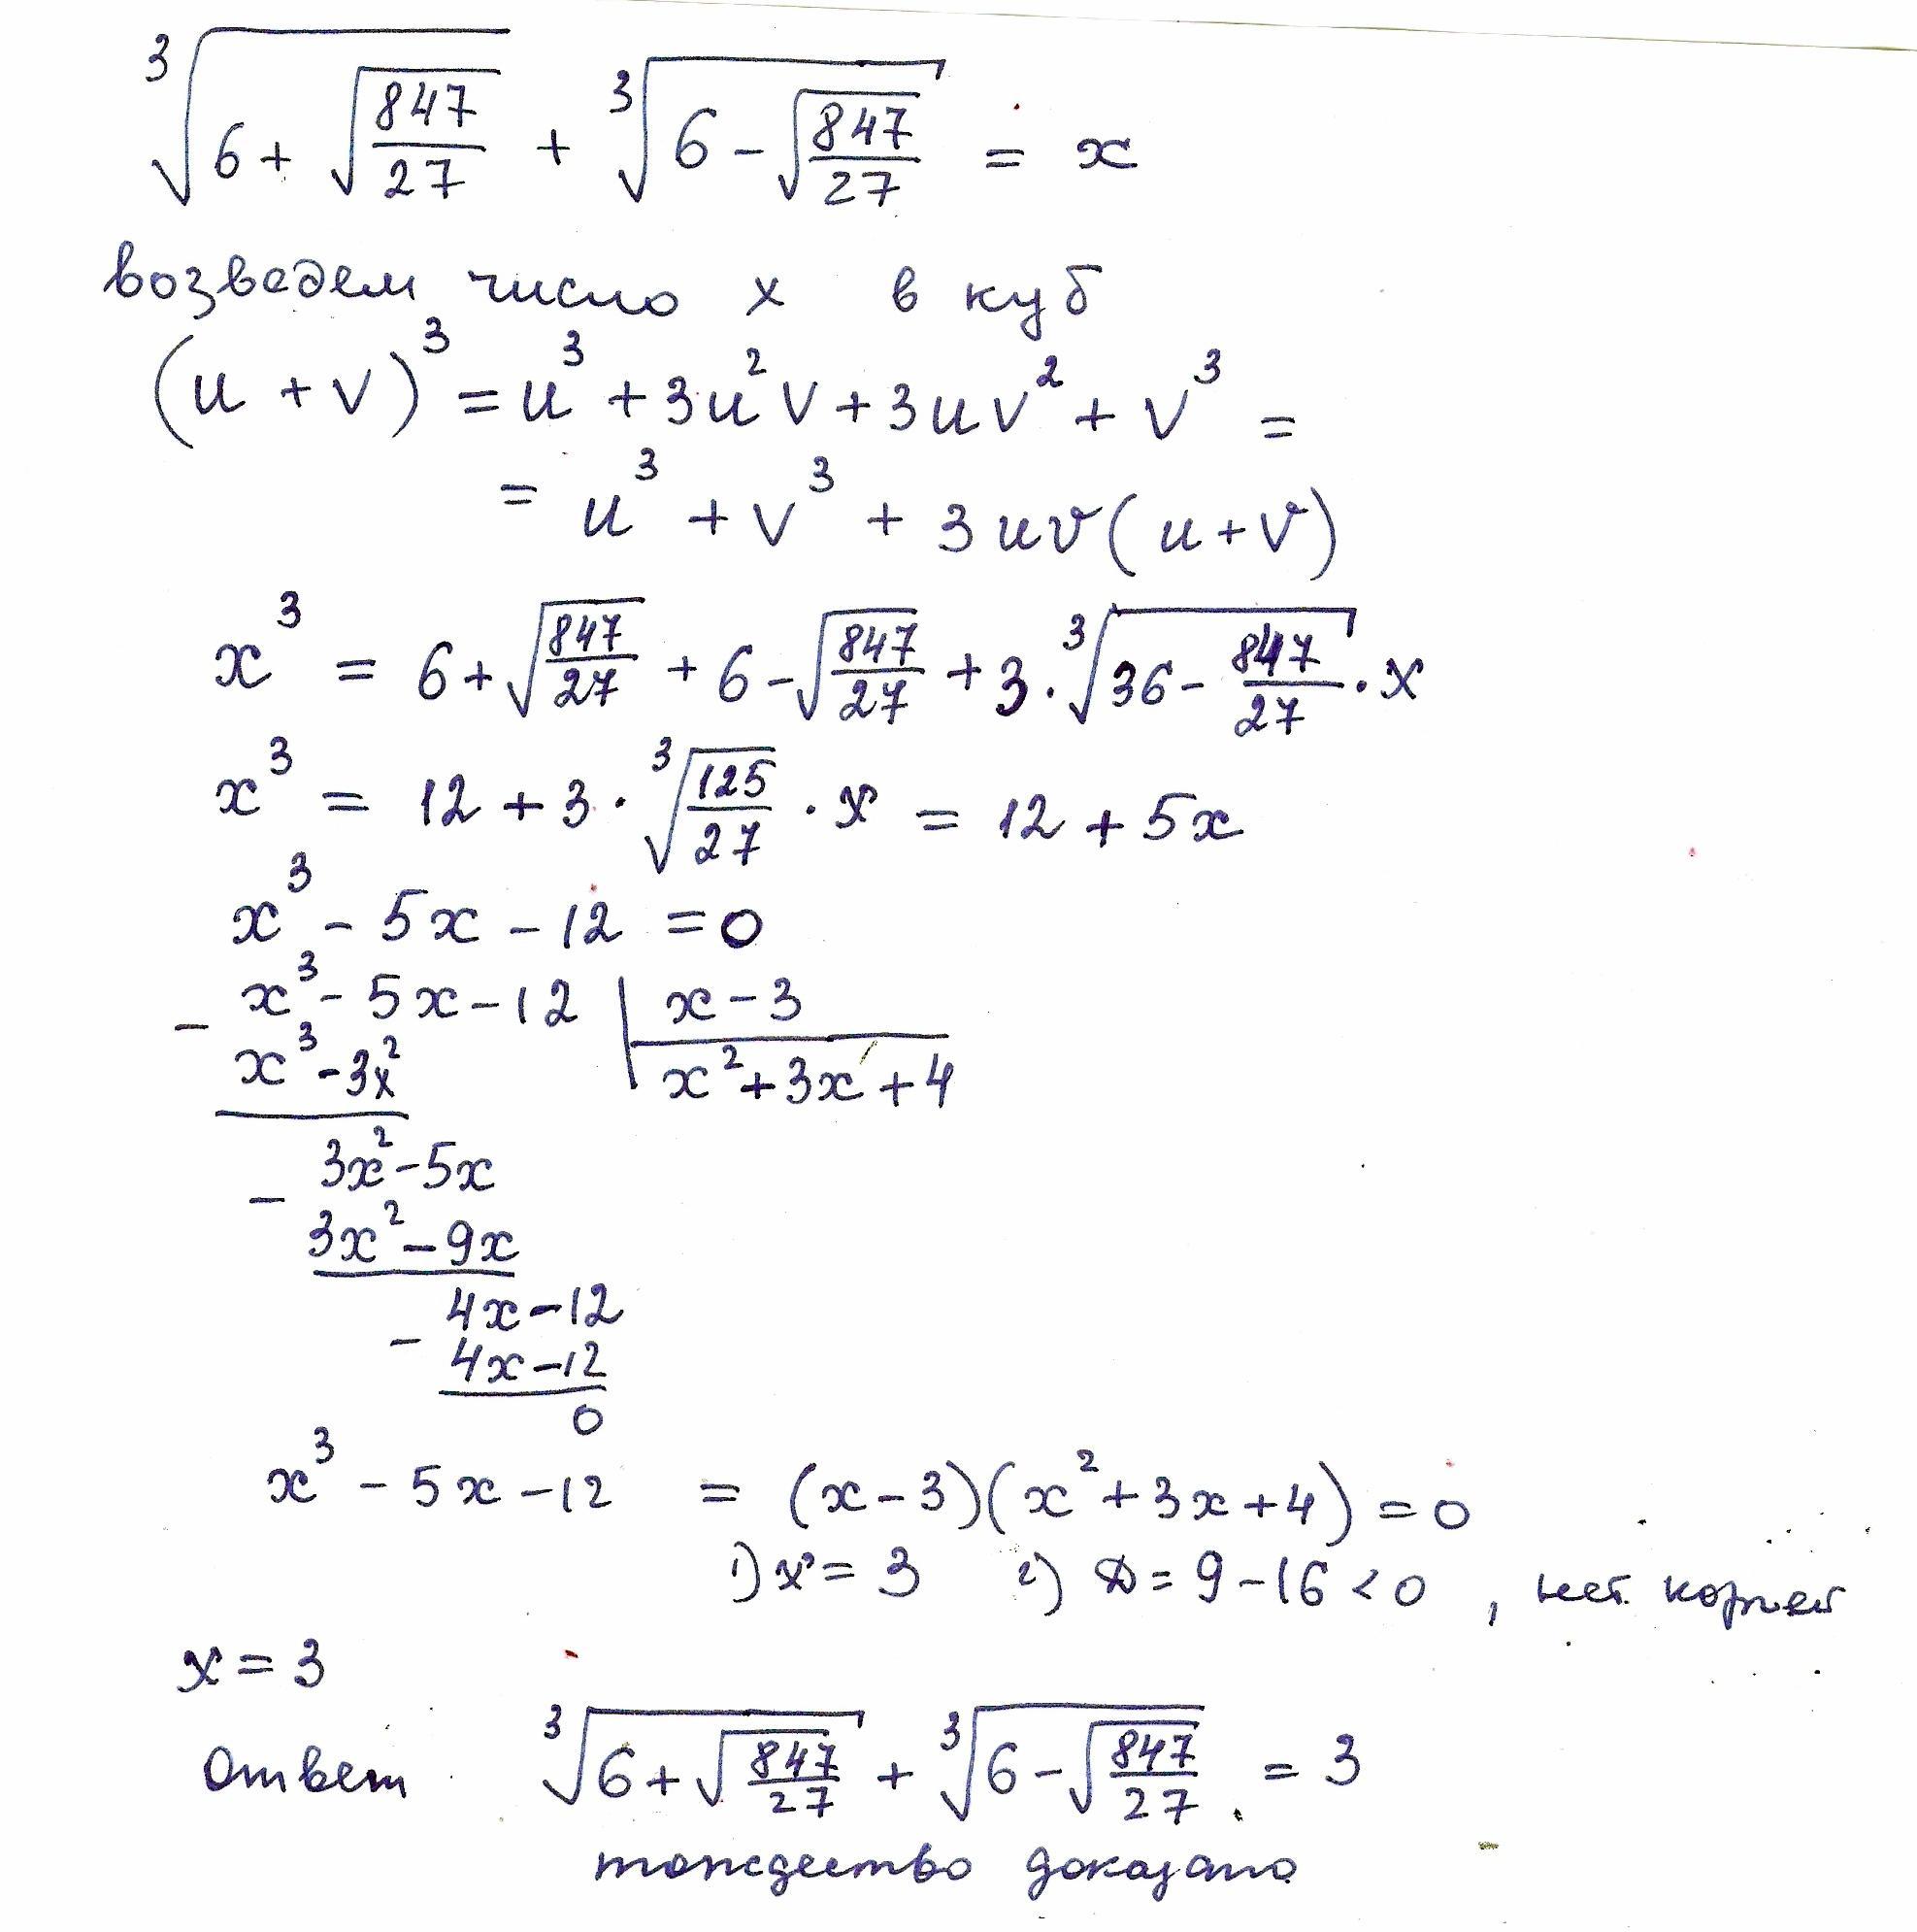 ∛(6 + √(847/27)) + ∛(6 − √(847/27)) = x
возведем число x в куб
(u + v)³ = u³ + 3u²v + 3uv² + v³ =
= u³ + v³ + 3uv(u + v)
x³ = 6 + √(847/27) + 6 − √(847/27) + 3 · ∛(36 − 847/27) · x
x³ = 12 + 3 · ∛(125/27) · x = 12 + 5x
x³ − 5x − 12 = 0
− x³ − 5x − 12 | x − 3
x³ − 3x² | x² + 3x + 4
− 3x² − 5x
3x² − 9x
− 4x − 12
4x − 12
0
x³ − 5x − 12 = (x − 3)(x² + 3x + 4) = 0
1) x = 3 2) D = 9 − 16 < 0, нет корней
x = 3
Ответ ∛(6 + √(847/27)) + ∛(6 − √(847/27)) = 3
тождество доказано.